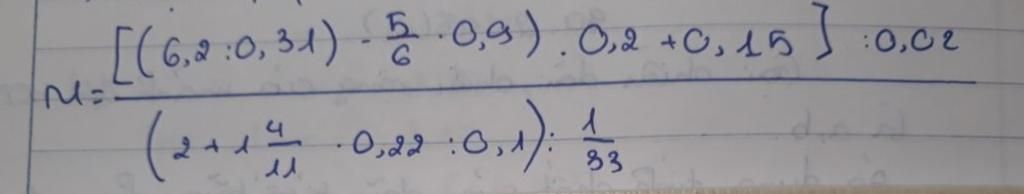 M = \frac{[(6,2 : 0,31) - \frac{5}{6} \cdot 0,9) . 0,2 + 0,15] : 0,02}{(2 + 1\frac{4}{11} \cdot 0,22 : 0,1) : \frac{1}{33}}